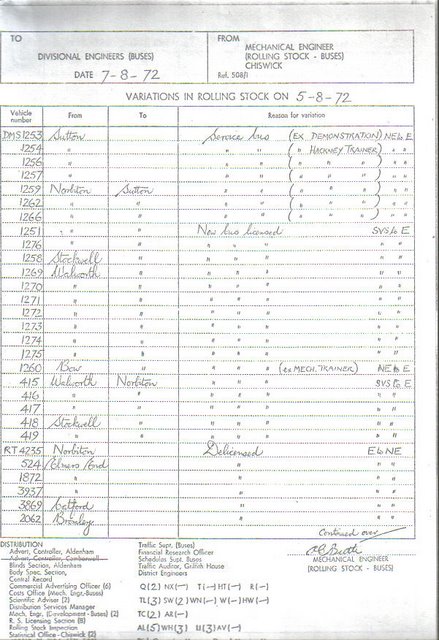 TO
FROM
DIVISIONAL ENGINEERS (BUSES)
MECHANICAL ENGINEER
(ROLLING STOCK - BUSES)
CHISWICK
DATE 7-8-72
Ref. 508/1
VARIATIONS IN ROLLING STOCK ON 5-8-72
Vehicle number From To Reason for variation
DMS1253 Sutton Service bus (EX DEMONSTRATION) NE to E
1254 " " " (" HACKNEY TRAINER) " "
1256 " " " (" " ") " "
1257 " " " (" " ") " "
1259 Norbiton Sutton " " (" " ") " "
1262 " " " " (" " ") " "
1266 " " " " (" " ") " "
1251 " " New bus licensed SVS to E
1276 " " " " " " "
1258 Stockwell " " " " " "
1269 Walworth " " " " " "
1270 " " " " " " "
1271 " " " " " " "
1272 " " " " " " "
1273 " " " " " " "
1274 " " " " " " "
1275 " " " " " " "
1260 Bow " " " " (ex MECH. TRAINER) NE to E
415 Walworth Norbiton " " " SVS to E
416 " " " " " " "
417 " " " " " " "
418 Stockwell " " " " " "
419 " " " " " " "
RT 4235 Norbiton Delicensed E to NE
524 Elmers End " " "
1872 " " " "
3937 " " " "
3869 Catford " " "
2062 Bromley " " "
Continued over
DISTRIBUTION
Advert. Controller, Aldenham
Advert. Controller, Camberwell
Blinds Section, Aldenham
Body Spec. Section,
Central Record
Commercial Advertising Officer (6)
Costs Office (Mech. Engr.-Buses)
Scientific Adviser (2)
Distribution Services Manager
Mech. Engr. (Development - Buses) (2)
R. S. Licensing Section (8)
Rolling Stock Inspection
Statistical Office - Chiswick (2)
Traffic Supt. (Buses)
Financial Research Officer
Schedules Supt. Buses
Traffic Auditor, Griffith House
District Engineers
Q(2) NX(-) T(-) HT(-) R(-)
TL(3) SW(2) WN(-) W(-) HW(-)
TC(2) AR(-)
AL(5) WH(3) U(3) AV(-)
MECHANICAL ENGINEER
(ROLLING STOCK - BUSES)